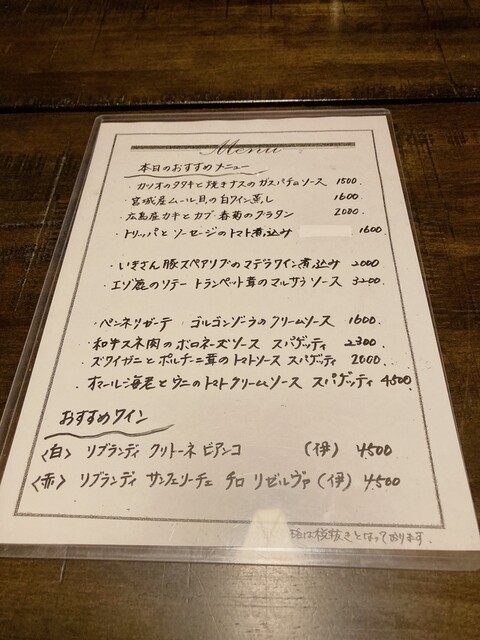 Menu
本日のおすすめメニュー
・カツオのタタキと焼きナスのガスパチョソース 1500.
・宮城産ムール貝の白ワイン蒸し 1600
・広島産カキとカブ・春菊のグラタン 2000.
・トリッパとソーセージのトマト煮込み 1600.
・いきさん豚スペアリブのマデラワイン煮込み 2000
・エゾ鹿のソテー トランペット茸のマルサラソース 3200.
・ペンネリガーテ ゴルゴンゾーラのクリームソース 1600.
・和牛スネ肉のボロネーズソース スパゲッティ 2300
・ズワイガニとポルチーニ茸のトマトソース スパゲッティ 2000.
・オマール海老とウニのトマトクリームソース スパゲッティ 4500
おすすめワイン
〈白〉 リブランディ クリトーネ ビアンコ (伊) 4500
〈赤〉 リブランディ サンフェリーチェ チロ リゼルヴァ (伊) 4500
は税抜きとなっております.